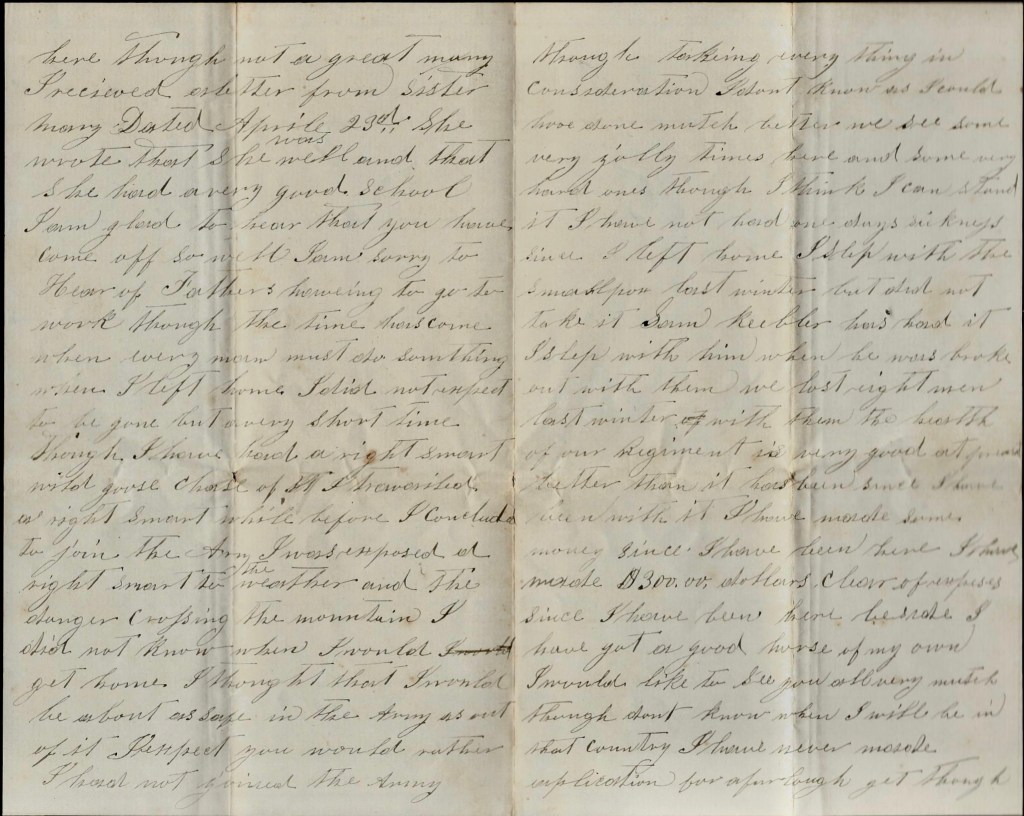 here though not a great many
I recieved a letter from Sister
Mary Dated Aprile 23rd She
wrote that She was well and that
She had a very good School
I am glad to hear that you have
come off so well I am sorry to
Hear of Fathers haveing to go to
work though the time has come
when every man must do something
when I left home I did not expect
to be gone but a very short time
though I have had a right smart
wild goose Chase of it I traveriled
a right smart while before I conclud
to join the Army I was exposed a
right smart to the weather and the
danger Crossing the mountain I
did not know when I would
get home I thought that I would
be about as safe in the Army as out
of it I expect you would rather
I had not joined the Army
though taking every thing in
Consideration I dont know as I could
have done mutch better we see some
very jolly times here and some very
hard ones though I think I can stand
it I have not had one days sickness
since I left home I slep with the
smallpox last winter but did not
take it Sam Keebler has had it
I slep with him when he was broke
out with them we lost eight men
last winter with them the health
of our Regiment is very good at
better than it has been since I have
been with it I have made some
money since I have been here I have
made $300.00, dollars Clear of expises
since I have been here beside I
have got a good horse of my own
I would like to See you all very mutch
though dont know when I will be in
that Country I have never made
aplication for a furlough yet though